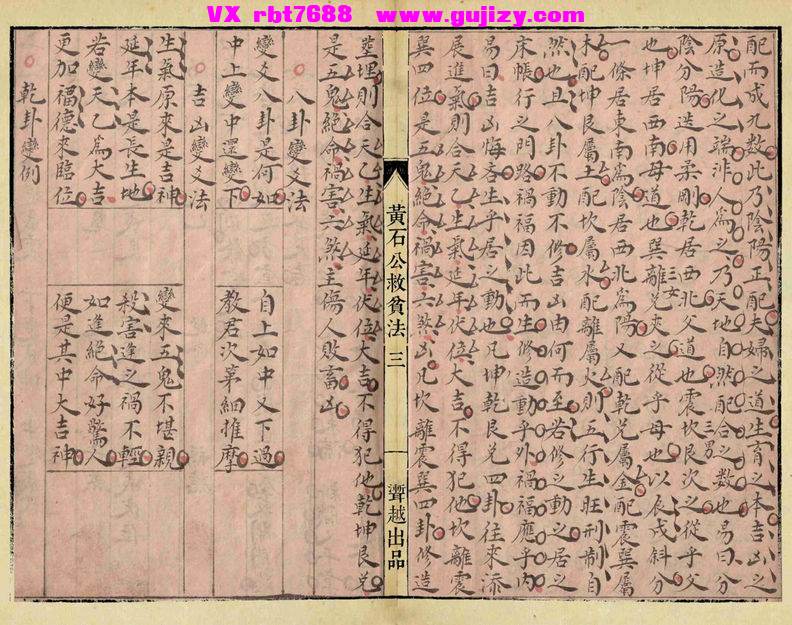 VX rbt7688 www.gujizy.com
配而成九數此乃陰陽正配夫婦之道生育之本吉凶之
原造化之端非人為之乃天地自然配合之數也易曰分
陰分陽迭用柔剛乾居西北父道也震坎艮次之從乎父
三男
也坤居西南母道也巽離兌夾之從乎母也以辰戌斜分
三女
一條居東南為陰居西北為陽又配乾兌屬金配震巽屬
木配坤艮屬土配坎屬水配離屬火則五行生旺刑制自
然也且八卦不動不修吉凶由何而至若修之動之居之
床帳行之門路禍福因此而生修造動乎外禍福應乎內
易曰吉凶悔吝生乎居之動也凡坤乾艮兌四卦往來添
展進氣則合天乙生氣延年伏位大吉不得犯他坎離震
巽四位是五鬼絕命禍害六煞凶凡坎離震巽四卦修造
黃石公救貧法 三
聱越出品
塟埋則合天乙生氣延年伏位大吉不得犯他乾坤艮兌
是五鬼絕命禍害六煞主傷人敗畜凶
八卦變爻法
變爻八卦是何如 自上如中又下過
中上變中還變下 教君次第細推摩
吉凶變爻法
生氣原來是吉神 變來五鬼不堪親
延年本是長生地 殺害逢之禍不輕
若變天乙為大吉 如逢絕命好驚人
更加福德來臨位 便是其中大吉神
乾卦變例